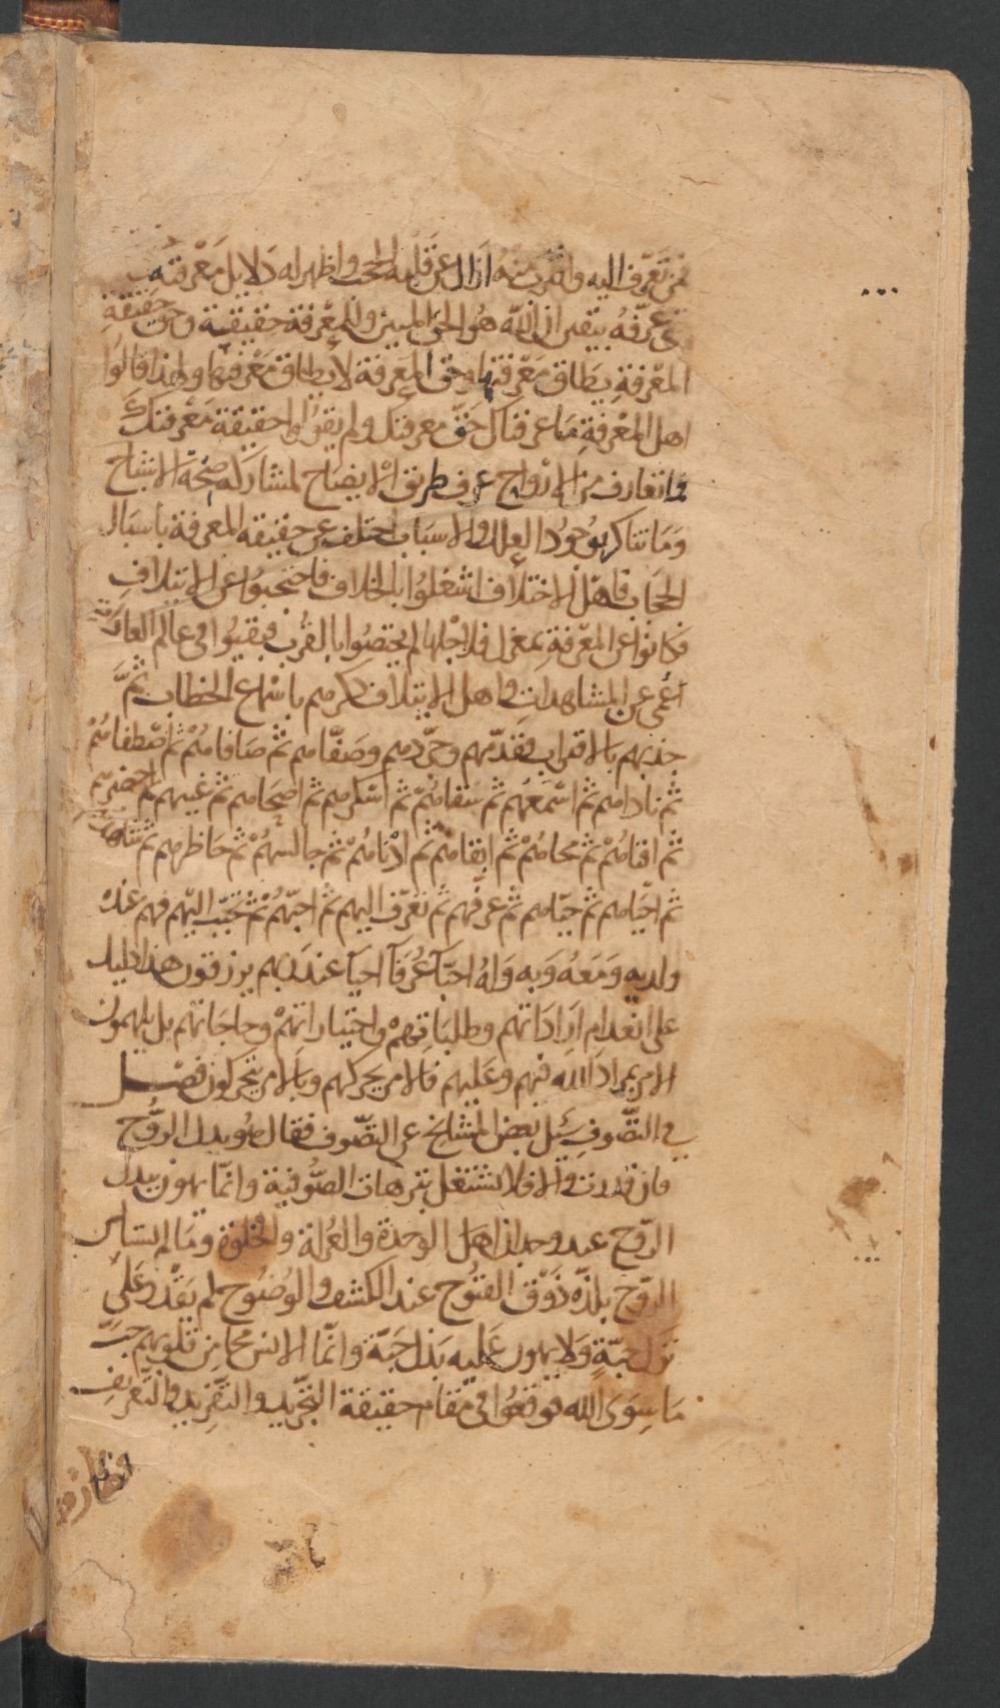 فمن تعرّف اليه واقترب منه ازال عن قلبه الحجب واظهر له دلايل معرفته
حتى عرفه بيقين ان الله هو الحق المبين وللمعرفة حقيقة وحق حقيقة
المعرفة يطاق معرفتها وحق المعرفة لا يطاق معرفتها ولهذا قالوا
اهل المعرفة ما عرفناك حق معرفتك ولم يقولوا حقيقة معرفتك
فما تعارف من الارواح عرف طريق الايضاح لمشاركة صحة الاشباح
وما تناكر بوجود العلل والاسباب اختلف عن حقيقة المعرفة باسبال
الحجاب فاهل الاختلاف اشغلوا بالخلاف فاحتجبوا عن الايتلاف
فكانوا عن المعرفة بمعزل فلاجلها لم يختصوا بالقرب فبقيوا في عالم العادات
اعمى عن المشاهدات واهل الايتلاف اكرمهم باسماع الخطاب ثمّ
جذبهم بالاقتراب فقدّمهم وجرّدهم وصفّاهم ثم صافاهُمْ ثم اصطفاهُمْ
ثم ناداهم ثم اسمعهم ثم سقاهُمْ ثم اسكرهم ثم اصحاهم ثم غيبهم ثم احضرهم
ثم افناهُمْ ثم محاهُمْ ثم ابقاهم ثم ادناهُمْ ثم جالسهُمْ ثم حاظرهم ثم
ثم احيّاهم ثم حيّاهم ثم عرفهم ثم تعرّف اليهم ثم احبّهُمْ ثم تحبّب اليهم فهم عنده
ولديه ومعه وبه وله احبّآ عُرفآ احيآ عند ربهم يرزقون هذا دليل
على انعدام اراداتهم وطلباتهم واختياراتهمْ وحاجاتهم بل يلهمون
الامر بمراد الله فيهم وعليهم فالامر يحركهم وبالامر يتحركون فصل
في التصّوف سُئل بعض المشايخ عن التصّوف فقال هو بدل الرُّوح
فان قدرت والا فلا تشتغل بترهات الصُّوفية وانّما يهون بدل
الرّوح عند وجدان اهل الوحدة والعزلة والخلوة وما لم يستأنس
الرّوح بلذّه ذوق الفتُوح عند الكشف والوضوح لم يقْدر على
ترك حبّةٍ ولا يهون عليه بذل حبّة وانّما الانس محا من قلوبهم حبّ
ما سوى الله فوقعُوا في مقام حقيقة التجّريد والتفريد والتعريف